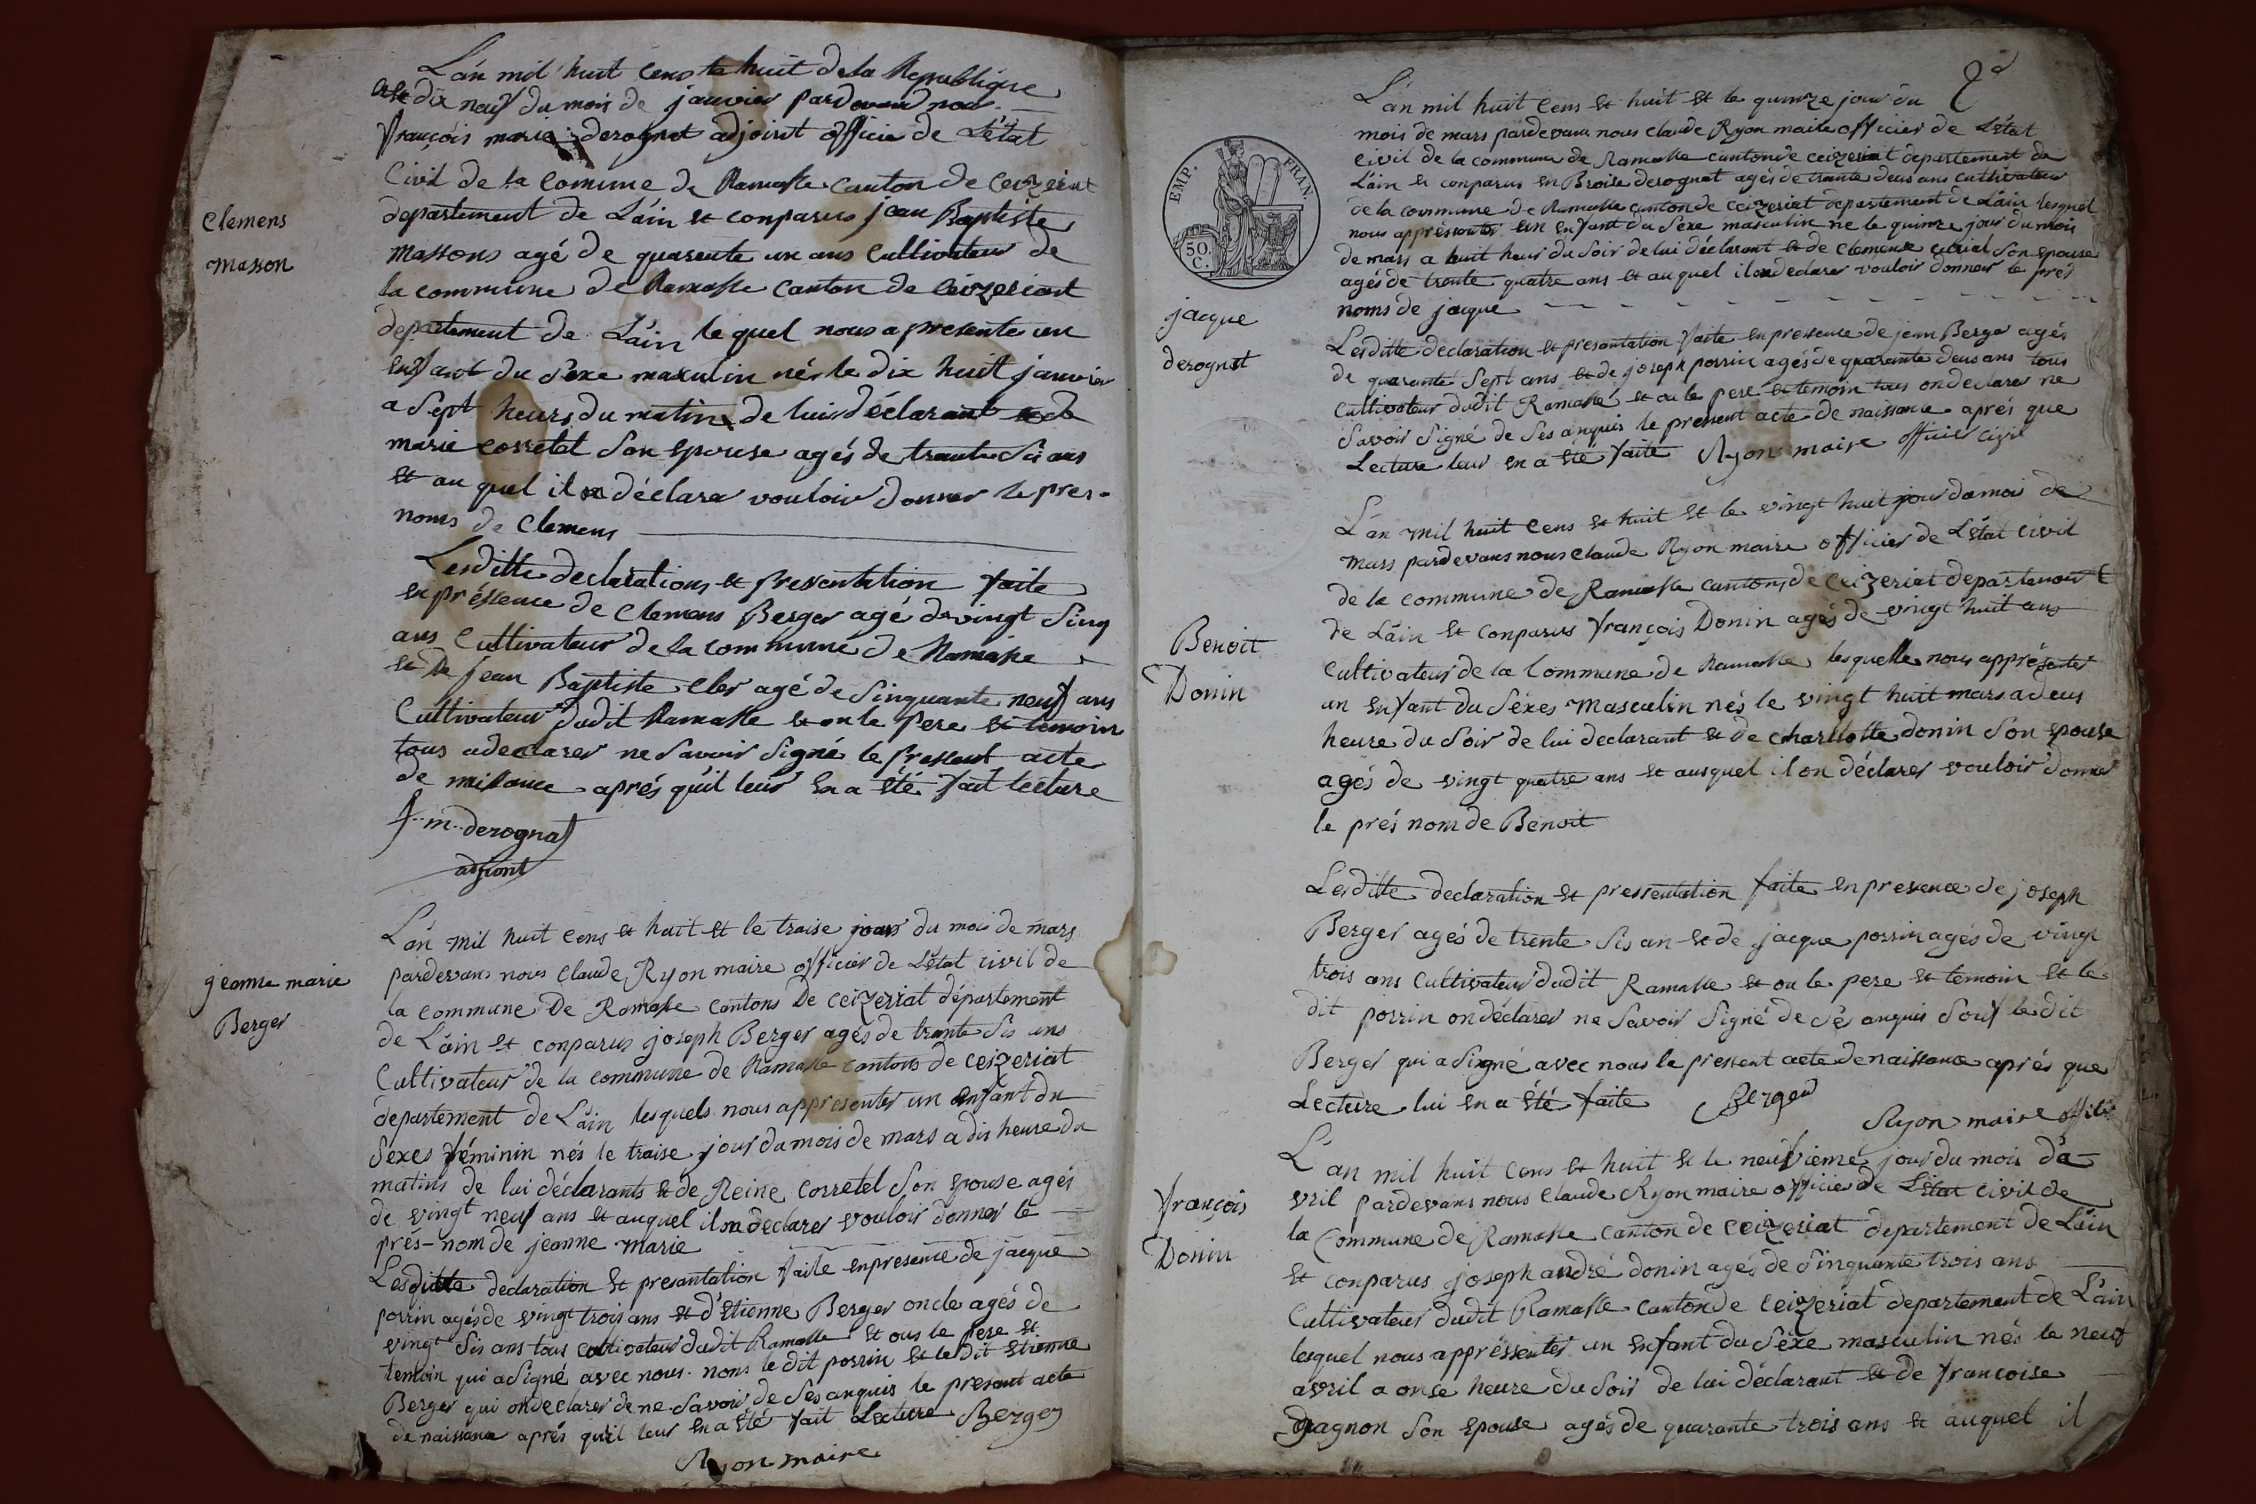 L'an mil huit cens te huit de la Republique
et le dix neuf du mois de janvier pardevant nous
françois marie derognat adjoint officie de L'état
Civil de la Comune de Ramasse canton de ceizeriat
departement de L'ain et conparus jean Baptiste
Massons agé de quarente un ans Cultivateur de
la commune de Ramasse canton de Ceizeriat
departement de L'ain le quel nous a presente un
enfant du Séxe masculin né le dix huit janvier
a Sept heurs du matin de luis déclarant et de
marie corretel Son epouse agés de trante Sis ans
et au quel il on déclarer vouloir donner le pres-
noms de Clemens
Clemens
masson
Lesditte declarations et presentation faite
en présence de Clemens Berger agé de vingt Sinq
ans Cultivateur de la commune de Ramasse
et De jean Baptiste Cler agé de Sinquante neuf ans
Cultivateur dudit Ramasse et on le pere et temoin
tous a declarer ne Savoir Signé le pressent acte
de naissance aprés qu'il leur en a été fait lecture
f. m. derognat
adjiont
L'an mil huit cens et huit et le traise jour du mois de mars
pardevans nous Claude Ryon maire officier de L'état civil de
la commune De Ramasse cantons De ceizeriat département
de L'ain et conparus joseph Berger agés de trante Sis ans
Cultivateur de la commune de Ramasse cantons de ceizeriat
departement de L'ain lesquels nous appresenter un enfant du
Séxes féminin nés le traise jour du mois de mars a dis heure du
matins de lui déclarants et de Reine corretel Son epouse agés
de vingt neuf ans et auquel il on declarer vouloir donner le
prés-nom de jeanne marie
jeanne marie
Berger
Lesditte declaration et presantation faite en presence de jacque
porrin agés de vingt trois ans et d'Etienne Berger oncle agés de
vingt Sis ans tous cultivateur dudit Ramasse et ous le pere et
temoin qui a Signé avec nous. nons le dit porrin et le dit etienne
Berger qui on declarer de ne Savoir de Ses anquis le present acte
de naissance aprés qu'il leur en a été fait Lecture Berger
Ryon maire
2d
L'an mil huit cens et huit et le quinze jour du
mois de mars pardevans nous Claude Ryon maire officier de L'état
civil de la commune de Ramasse canton de ceizeriat departement de
L'ain et conparus en Broise derognat agés de trante deus ans cultivateur
de la commune de Ramasse canton de ceizeriat departement de L'ain lesquel
nous appressenter un enfant du Séxe masculin ne le quinze jour du mois
de mars a huit heur du Soir de lui déclarant et de Clemence Son epouse
agés de trente quatre ans et au quel il on declarer vouloir donner le prés
noms de jacque
EMP. FRAN.
50. C.
jacque
derognat
Lesditte declaration et presentation faite en pressence de jean Berger agés
de quarante Sept ans et de joseph porrin agés de quarante deus ans tous
cultivateur dudit Ramasse et ou le pere et temoin tous on declarer ne
Savoir Signé de Ses anquis le present acte de naissance aprés que
Lecture leur en a été faite Ryon maire officier civil
L'an mil huit cens et huit et le vingt huit jour du mois de
mars pardevans nous Claude Ryon maire officier de L'état civil
de la commune de Ramasse cantons de Ceizeriat departement
de L'ain et conparus françois Donin agés de vingt huit ans
Cultivateur de la Commune de Ramasse lesquelle nous appresenter
un enfant du Séxes Masculin nés le vingt huit mars a deus
heure du Soir de lui declarant et de charllotte donin Son epouse
agés de vingt quatre ans et ausquel il on déclarer vouloir donner
le prés nom de Benoit
Benoit
Donin
Lesditte declaration et pressentation faite en presence de joseph
Berger agés de trente Sis an et de jacque porrin agés de vingt
trois ans Cultivateur dudit Ramasse et ou le pere et temoin et le
dit porrin on déclarer ne Savoir Signé de Sés anquis Souf le dit
Berger qui a Signé avec nous le pressent acte de naissance aprés que
Lecture lui en a été faite Berger
Ryon maire officier
L'an mil huit cens et huit et le neuvieme jour du mois d'a-
vril pardevans nous Claude Ryon maire officier de L'état civil de
la Commune de Ramasse canton de ceizeriat departement de L'ain
et conparus joseph andré donin agés de Sinquante trois ans
Cultivateur dudit Ramasse canton de ceizeriat departement de L'ain
lesquel nous appréssenter un enfant du Séxe masculin nés le neuf
avril a onse heure du Soir de lui déclarant et de francoise
gagnon Son epouse agés de quarante trois ans et auquel il
françois
Donin